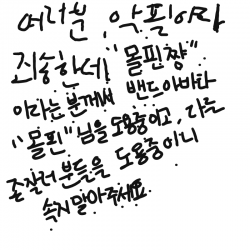 여러분, 악필이라
죄송한데, "몰핀챵"
이라는 분께서 밴드아바타
"몰핀"님을 도용중이고, 다른
존잘러 분들을 도용중이니
속지말아주세요.